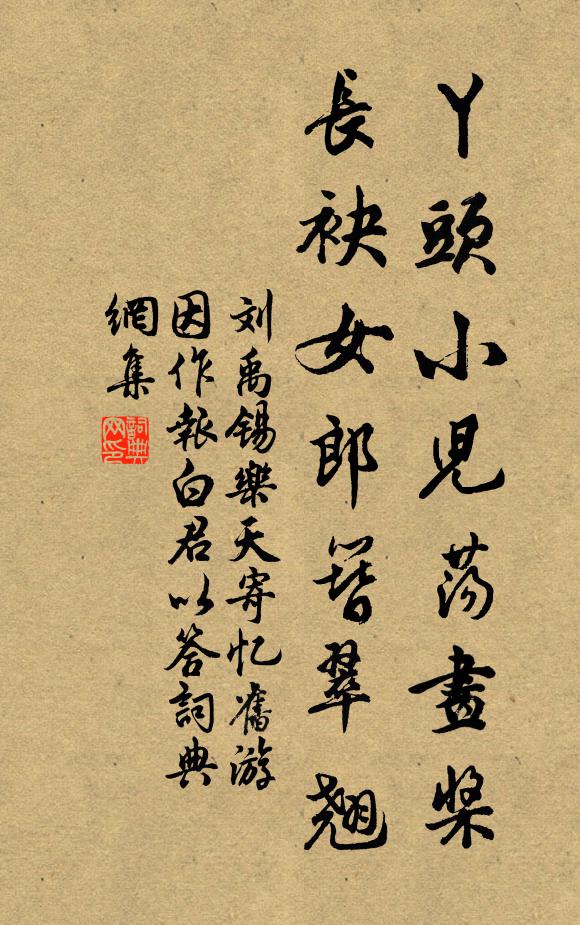 丫頭小児蕩畫槳
長袂女郎簪翠翹
刘禹锡樂天寄忆舊游
因作報白君以答詞典
網集
詞典网印